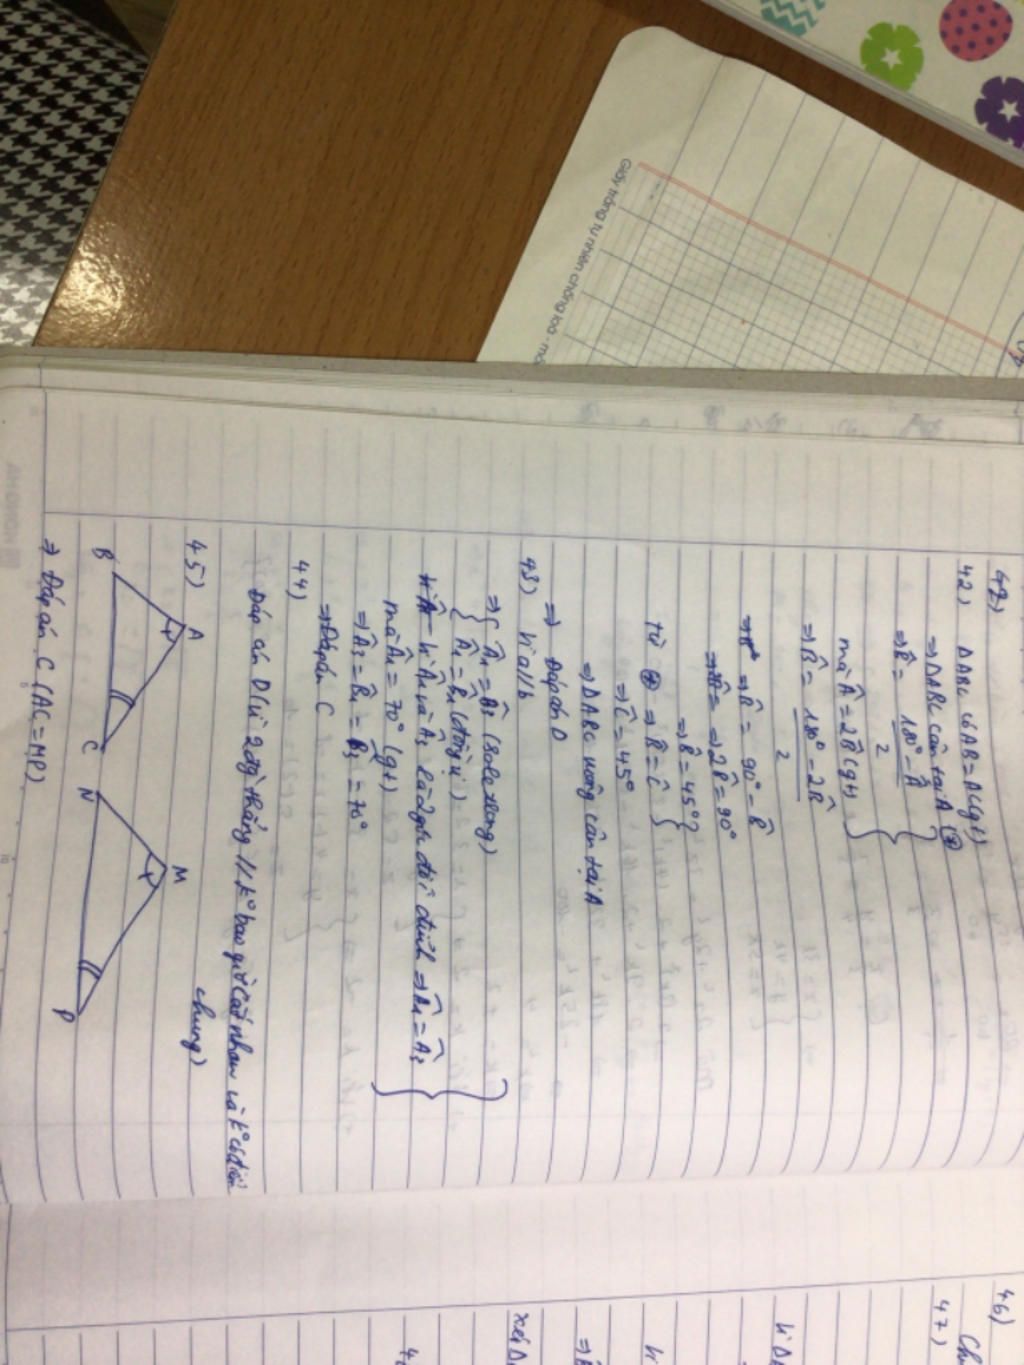 42)
42) ΔABC có AB = AC (gt)
⇒ ΔABC cân tại A (*)
⇒ B̂ = 180° - Â / 2
mà Â = 2B̂ (gt)
⇒ B̂ = 180° - 2B̂ / 2
⇒ B̂ = 90° - B̂
⇒ 2B̂ = 90°
⇒ B̂ = 45°
từ (*) ⇒ B̂ = Ĉ
⇒ Ĉ = 45°
⇒ ΔABC vuông cân tại A
⇒ Đáp án D
43) Vì a//b
⇒ { Â₁ = B̂₃ (sole trong)
Â₁ = B̂₁ (đồng vị)
Vì Â₁ và Â₃ là 2 góc đối đỉnh ⇒ Â₁ = Â₃
mà Â₁ = 70° (gt)
⇒ Â₃ = B̂₁ = B̂₃ = 70°
⇒ Đáp án C
44)
Đáp án D (vì 2 đg thẳng // k° bao giờ cắt nhau và k° có điểm
chung)
45)
A
B
C
M
N
P
⇒ Đáp án C (AC = MP)
46)
47)
Giấy trắng tự nhiên chống loá